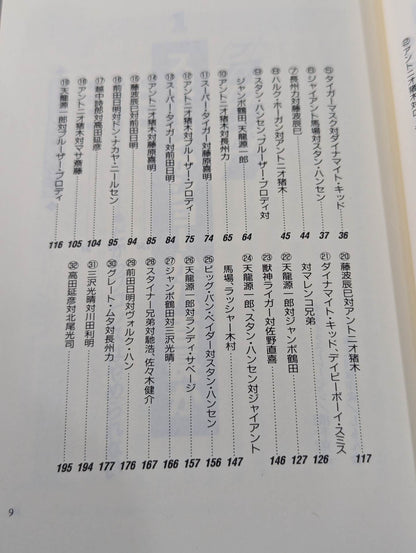 ⑤タイガーマスク対ダイナマイト・キッド 36
⑥ジャイアント馬場対スタン・ハンセン 37
⑦長州力対藤波辰巳 44
⑧ハルク・ホーガン対アントニオ猪木 45
⑨スタン・ハンセン、ブルーザー・ブロディ対
ジャンボ鶴田、天龍源一郎 64
⑩アントニオ猪木対長州力 65
⑪スーパー・タイガー対藤原喜明 74
⑫アントニオ猪木対ブルーザー・ブロディ 75
⑬スーパー・タイガー対前田日明 84
⑭アントニオ猪木対藤原喜明 85
⑮藤波辰巳対前田日明 94
⑯前田日明対ドン・ナカヤ・ニールセン 95
⑰越中詩郎対高田延彦 104
⑱アントニオ猪木対マサ斎藤 105
⑲天龍源一郎対ブルーザー・ブロディ 116
⑳藤波辰巳対アントニオ猪木 117
㉑ダイナマイト・キッド、デイビーボーイ・スミス
対マレンコ兄弟 126
㉒天龍源一郎対ジャンボ鶴田 127
㉓獣神ライガー対佐野直喜 146
㉔天龍源一郎、スタン・ハンセン対ジャイアント
馬場、ラッシャー木村 147
㉕ビッグ・バン・ベイダー対スタン・ハンセン 156
㉖天龍源一郎対ランディ・サベージ 157
㉗ジャンボ鶴田対三沢光晴 166
㉘スタイナー兄弟対馳浩、佐々木健介 167
㉙前田日明対ヴォルク・ハン 176
㉚グレート・ムタ対長州力 177
㉛三沢光晴対川田利明 194
㉜高田延彦対北尾光司 195
9